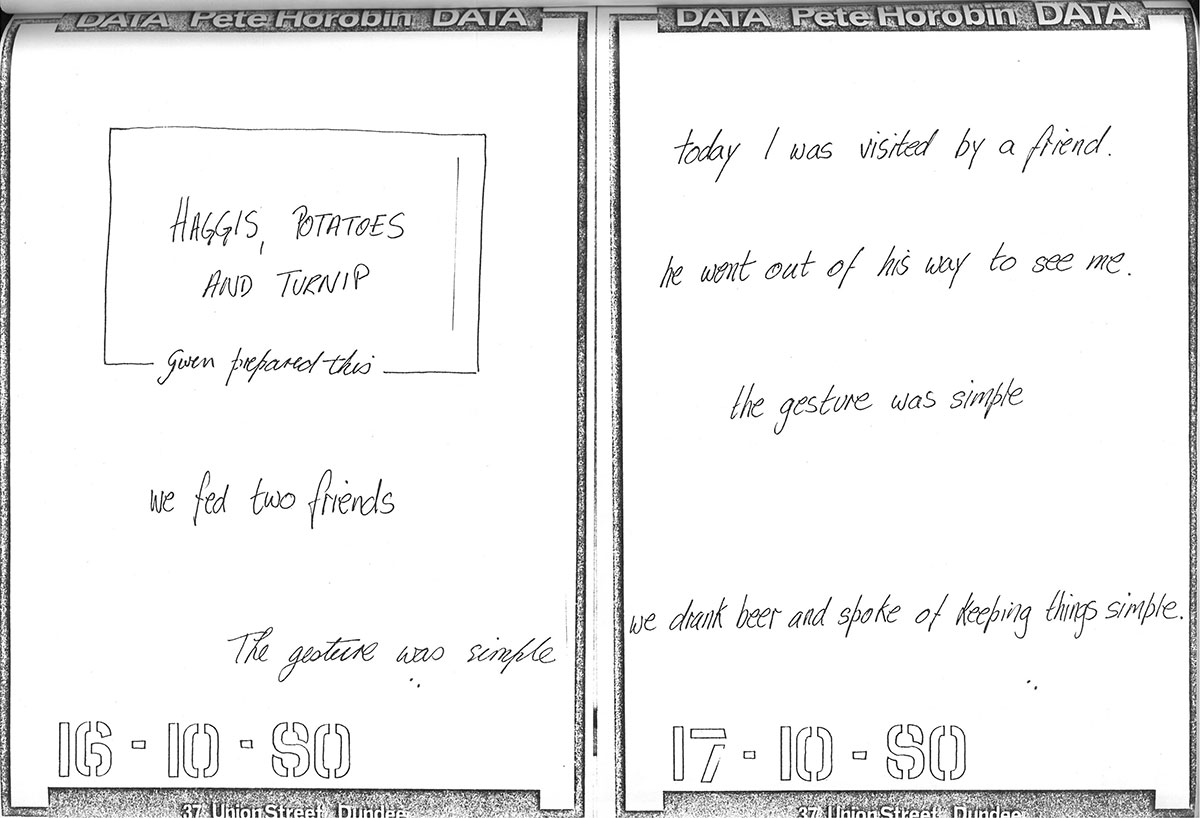 DATA Pete Horobin DATA
HAGGIS, POTATOES
AND TURNIP
Gwen prepared this
we fed two friends
The gesture was simple
16-10-80
37 Union Street, Dundee
DATA Pete Horobin DATA
today I was visited by a friend.
he went out of his way to see me.
the gesture was simple
we drank beer and spoke of keeping things simple.
17-10-80
37 Union Street, Dundee